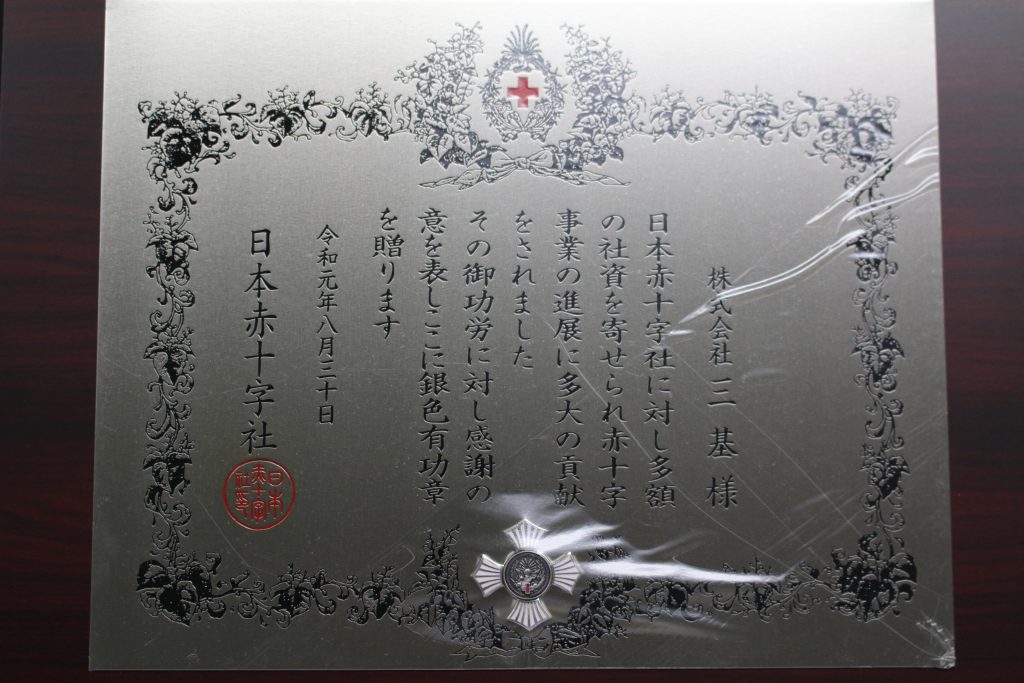 株式会社 三基 様
日本赤十字社に対し多額
の社資を寄せられ赤十字
事業の進展に多大の貢献
をされました
その御功労に対し感謝の
意を表しここに銀色有功章
を贈ります
令和元年八月三十日
日本赤十字社
日本
赤十字
社印